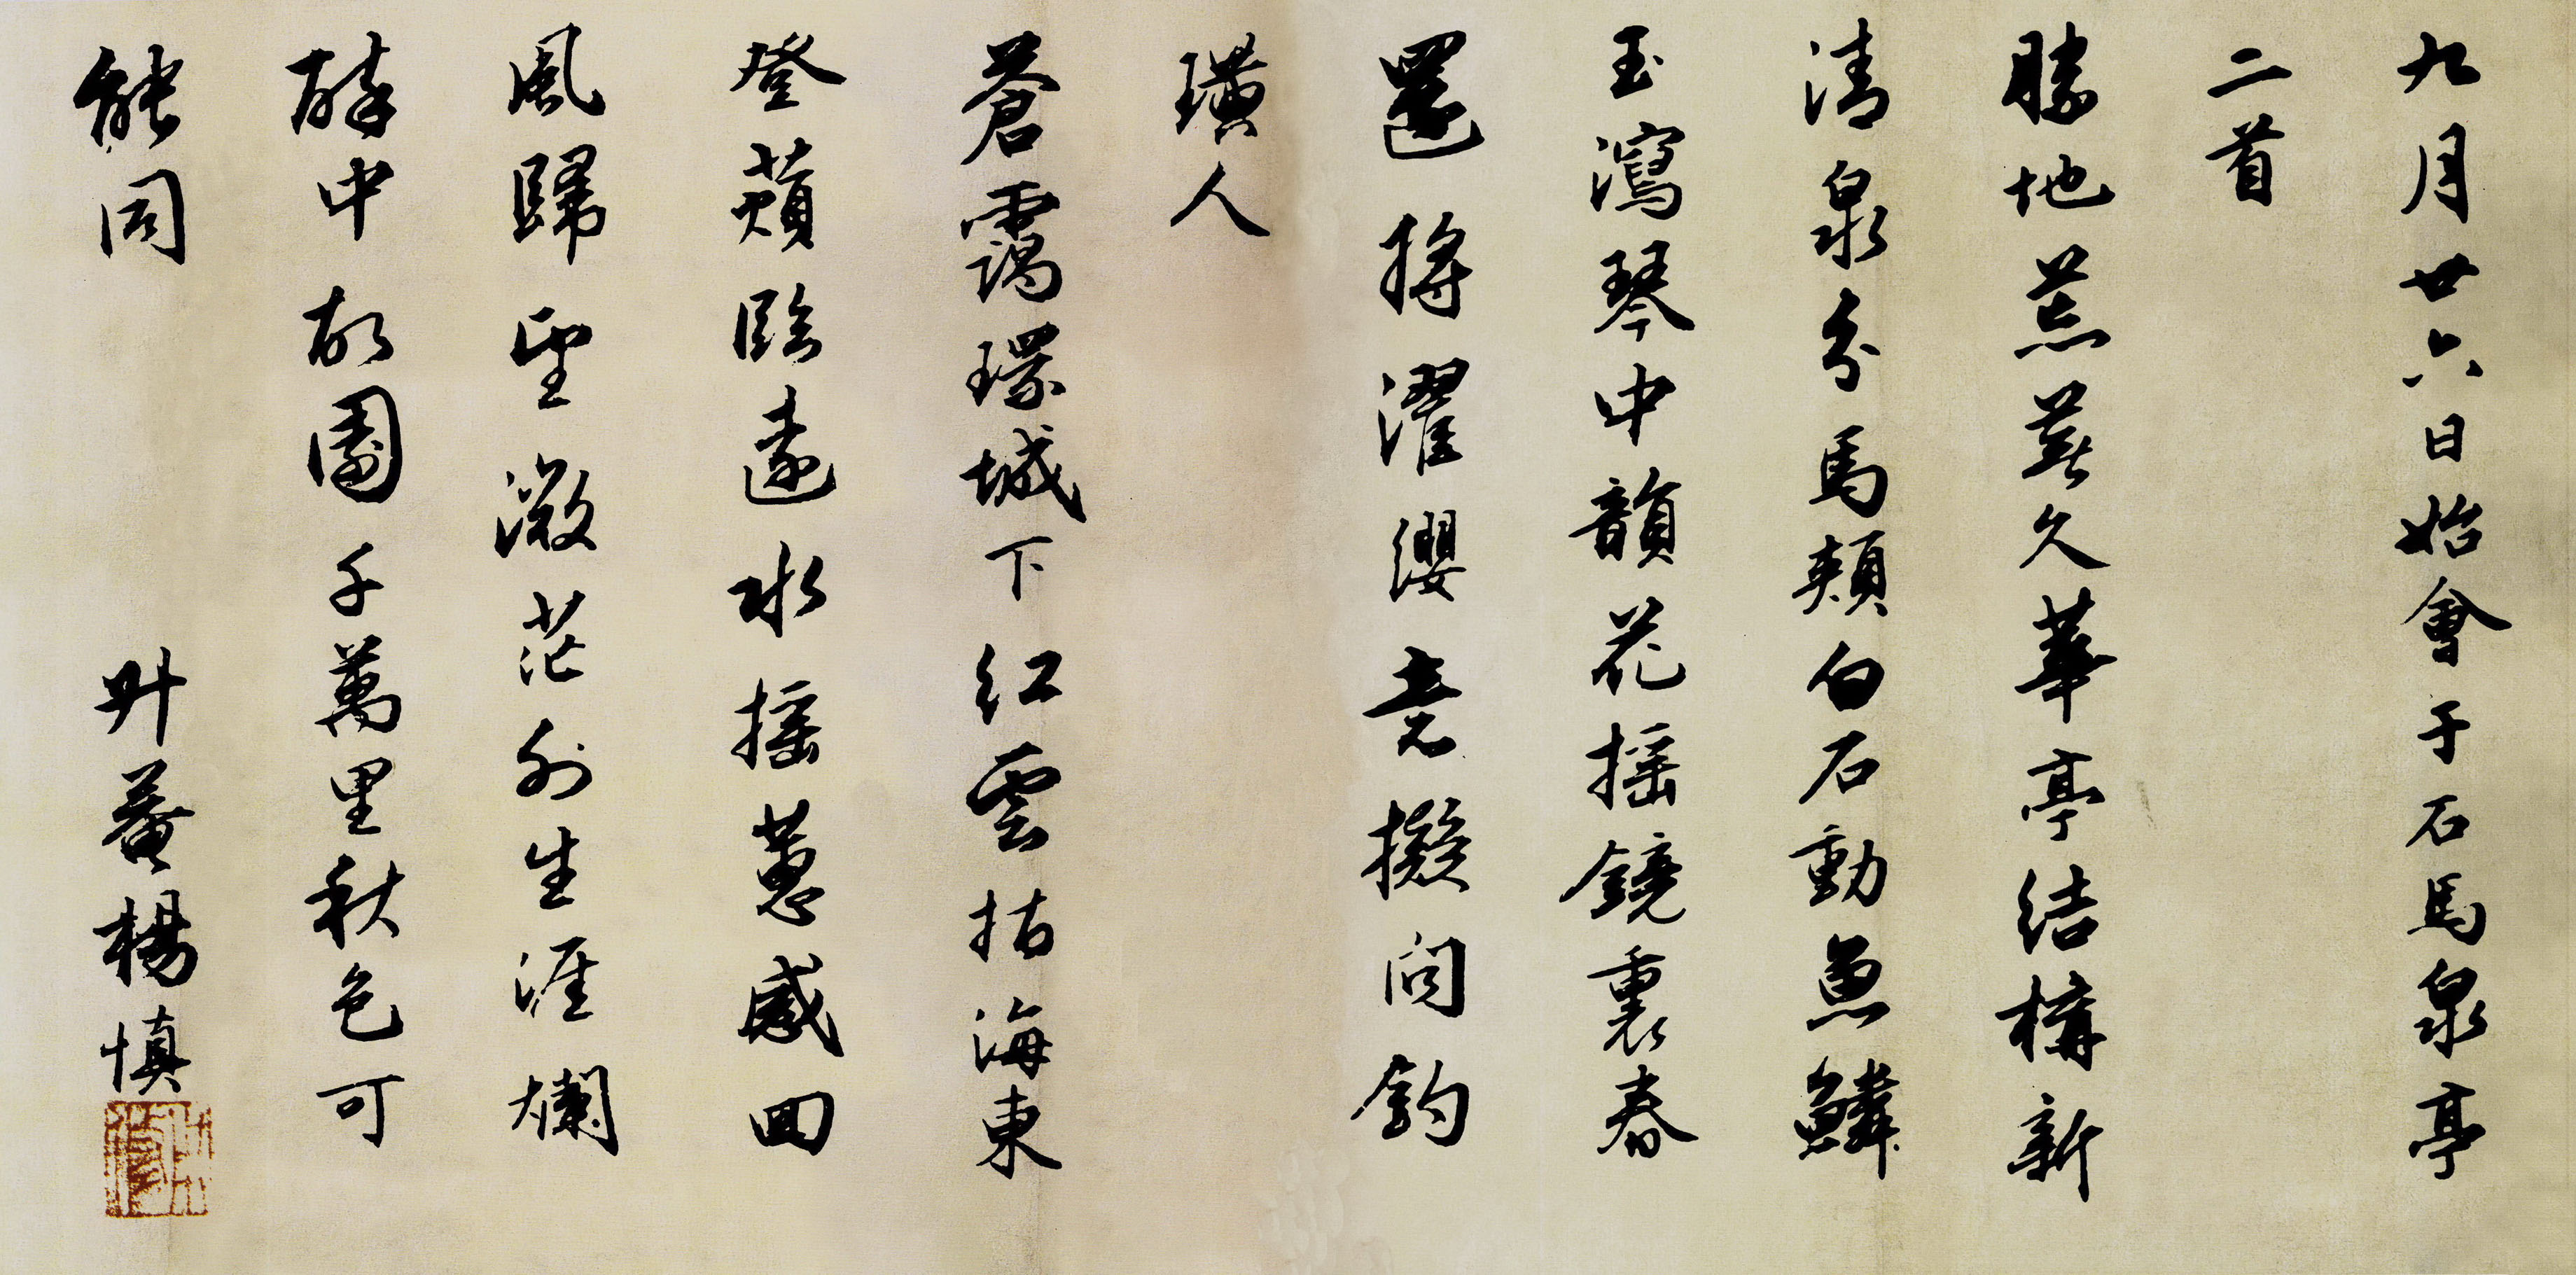 九月廿六日始會于石馬泉亭
二首
勝地荒蕪久華亭結構新
清泉分馬頰白石動魚鱗
玉瀉琴中韻花搖鏡裏春
還將濯纓意擬問釣
璜人
蒼靄環城下紅雲指海東
登蘋臨遠水搖蕙感回
風歸望微茫外生涯爛
醉中故園千萬里秋色可
能同
升菴楊慎